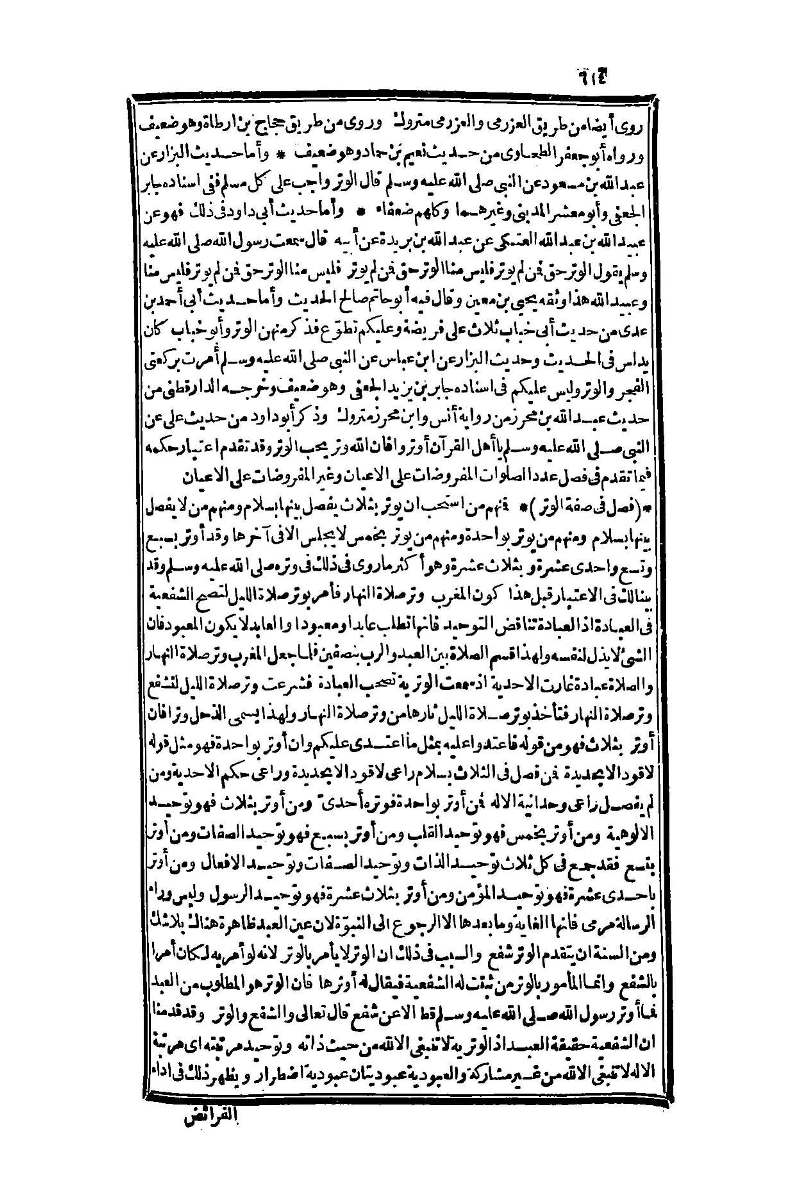 ٦١٤
روى أيضا من طريق العزرمى والعزرمى متروك وروى من طريق حجاج بن ارطاة وهو ضعيف
ورواه أبو جعفر الطحاوى من حديث نعيم بن حماد وهو ضعيف * وأما حديث البزار عن
عبد الله بن مسعود عن النبى صلى الله عليه وسلم قال الوتر واجب على كل مسلم ففى اسناده جابر
الجعفى وأبو معشر المدينى وغيرهما وكلهم ضعفاء * وأما حديث أبى داود فى ذلك فهو عن
عبيد الله بن عبد الله العتكى عن عبد الله بن بريدة عن أبيه قال سمعت رسول الله صلى الله عليه
وسلم يقول الوتر حق فمن لم يوتر فليس منا الوتر حق فمن لم يوتر فليس منا الوتر حق فمن لم يوتر فليس منا
وعبيد الله هذا وثقه يحيى بن معين وقال فيه أبو حاتم صالح الحديث وأما حديث أبى أحمد بن
عدى من حديث أبى خباب ثلاث على فريضة وعليكم تطوّع فذكر منهن الوتر وأبو خباب كان
يدلس فى الحديث وحديث البزار عن ابن عباس عن النبى صلى الله عليه وسلم أمرت بركعتى
الفجر والوتر وليس عليكم فى اسناده جابر بن يزيد الجعفى وهو ضعيف وخرجه الدارقطنى من
حديث عبد الله بن محرز من رواية أنس وابن محرز متروك وذكر أبو داود من حديث على عن
النبى صلى الله عليه وسلم يا أهل القرآن أوتروا فان الله وتر يحب الوتر وقد تقدم اعتبار حكمه
فيما تقدم فى فصل عدد الصلوات المفروضات على الاعيان وغير المفروضات على الاعيان
*(فصل فى صفة الوتر)* فمنهم من استحب ان يوتر بثلاث يفصل بينها بسلام ومنهم من لا يفصل
بينها بسلام ومنهم من يوتر بواحدة ومنهم من يوتر بخمس لا يجلس الا فى آخرها وقد أوتر بسبع
وتسع واحدى عشرة وبثلاث عشرة وهو أكثر ما روى فى ذلك فى وتره صلى الله عليه وسلم وقد
بينا لك فى الاعتبار قبل هذا كون المغرب وتر صلاة النهار فأمر بوتر صلاة الليل لتصح الشفعية
فى العبادة اذ العبادة تناقض التوحيد فانها تطلب عابدا ومعبودا والعابد لا يكون المعبود فان
الشئ لا يذل لنفسه ولهذا قسم الصلاة بين العبد والرب بنصفين فلما جعل المغرب وتر صلاة النهار
والصلاة عبادة غارت الاحدية اذ سمعت الوترية تصحب العبادة فشرعت وتر صلاة الليل لتشفع
وتر صلاة النهار فتأخذ بوتر صلاة الليل ثارها من وتر صلاة النهار ولهذا يسمى الذحل وترا فان
أوتر بثلاث فهو من قوله فاعتدوا عليه بمثل ما اعتدى عليكم وان أوتر بواحدة فهو مثل قوله
لا قود الا بحديدة فمن فصل فى الثلاث بسلام راعى لا قود الا بحديدة وراعى حكم الاحدية ومن
لم يفصل راعى وحدانية الاله فمن أوتر بواحدة فوتره أحدى ومن أوتر بثلاث فهو توحيد
الالوهية ومن أوتر بخمس فهو توحيد القلب ومن أوتر بسبع فهو توحيد الصفات ومن أوتر
بتسع فقد جمع فى كل ثلاث توحيد الذات وتوحيد الصفات وتوحيد الافعال ومن أوتر
باحدى عشرة فهو توحيد المؤمن ومن أوتر بثلاث عشرة فهو توحيد الرسول وليس وراء
الرسالة مرمى فانها الغاية وما بعدها الا الرجوع الى النبوّة لان عين العبد ظاهرة هناك بلا شك
ومن السنة ان يتقدم الوتر شفع والسبب فى ذلك ان الوتر لا يأمر بالوتر لانه لو أمر به لكان أمرا
بالشفع وانما المأمور بالوتر من ثبتت له الشفعية فيقال له أوترها فان الوتر هو المطلوب من العبد
فما أوتر رسول الله صلى الله عليه وسلم قط الا عن شفع قال تعالى والشفع والوتر وقد قدمنا
ان الشفعية حقيقة العبد اذ الوترية لا تنبغى الا لله من حيث ذاته وتوحيد مرتبته اى مرتبة
الاله لا تنبغى الا لله من غير مشاركة والعبودية عبوديتان عبودية اضطرار ويظهر ذلك فى اداء
الفرائض